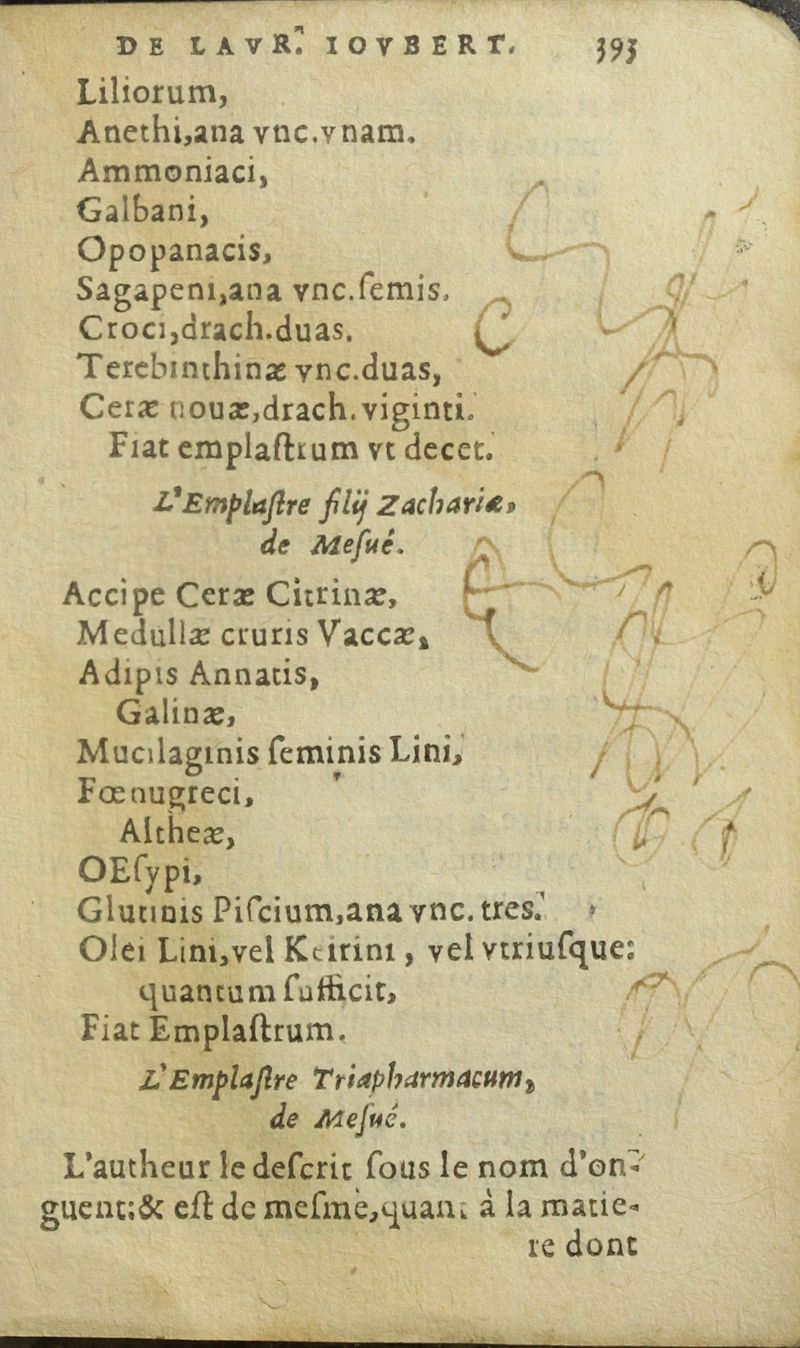 DE LAVR. IOVBERT. 393
Liliorum,
Anethi,ana vnc.vnam.
Ammoniaci,
Galbani,
Opopanacis,
Sagapeni,ana vnc.ſemis.
Croci,drach.duas.
Terebinthinæ vnc.duas,
Ceræ nouæ,drach.viginti.
Fiat emplaſtrum vt decet.
L'Emplaſtre filij Zachariæ,
de Meſué.
Accipe Ceræ Citrinæ,
Medullæ cruris Vaccæ,
Adipis Annatis,
Galinæ,
Mucilaginis ſeminis Lini,
Fœnugreci,
Altheæ,
OEſypi,
Glutinis Piſcium,ana vnc. tres.
Olei Lini,vel Keirini, vel vtriuſque:
quantum ſufficit,
Fiat Emplaſtrum.
L'Emplaſtre Triapharmacum,
de Meſué.
L'autheur le deſcrit ſous le nom d'on-
guent:& eſt de meſmè,quant à la matie-
re dont